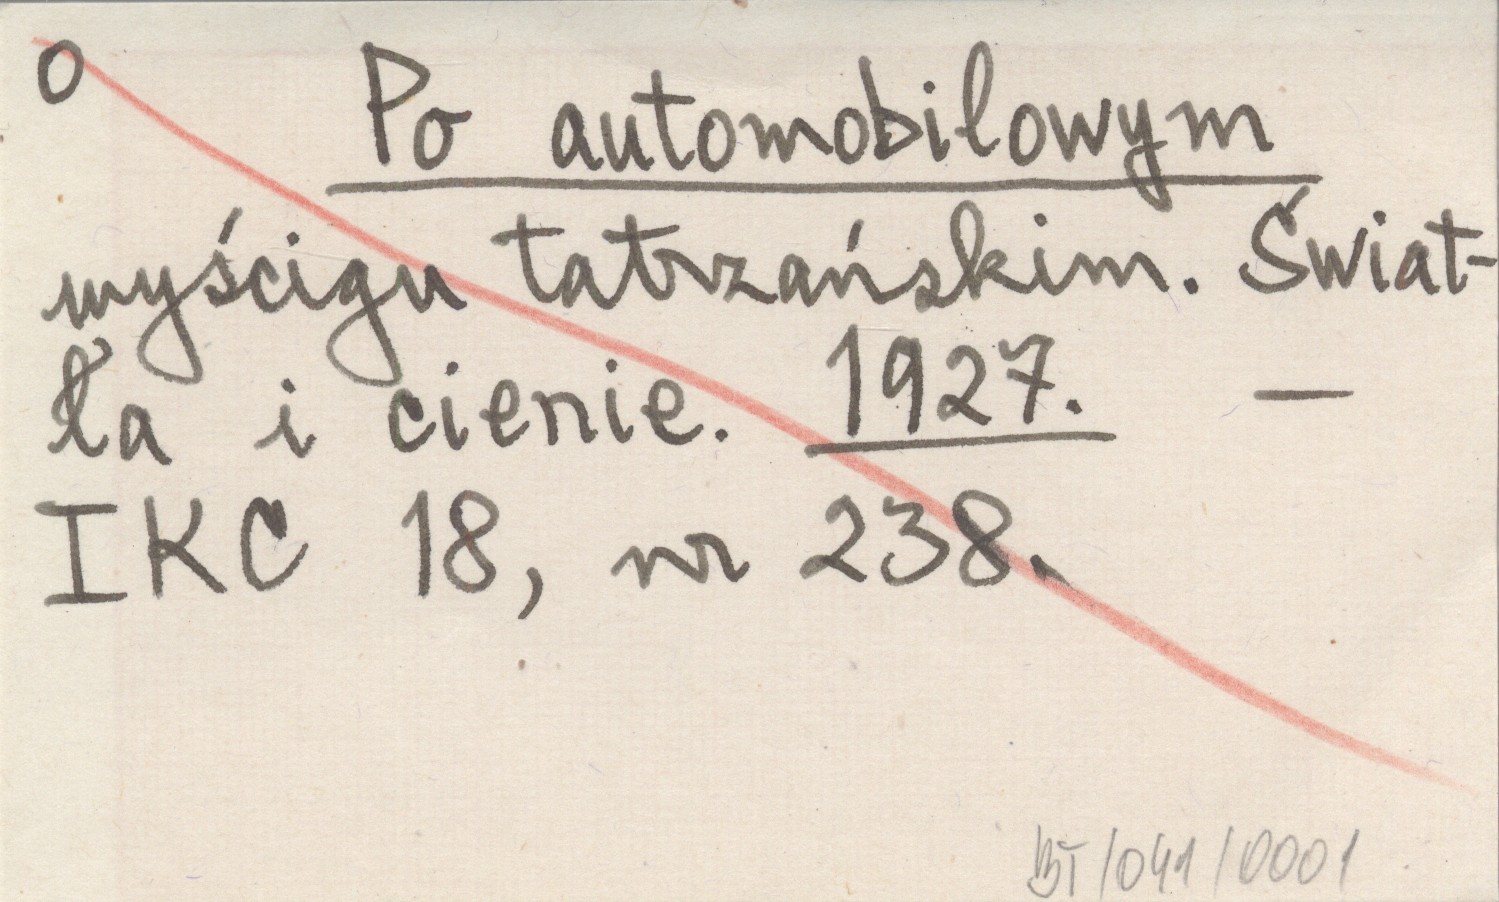 o Po automobilowym
wyścigu tatrzańskim. Świat-
ła i cienie. 1927. —
IKC 18, nr 238.
BT/041/0001